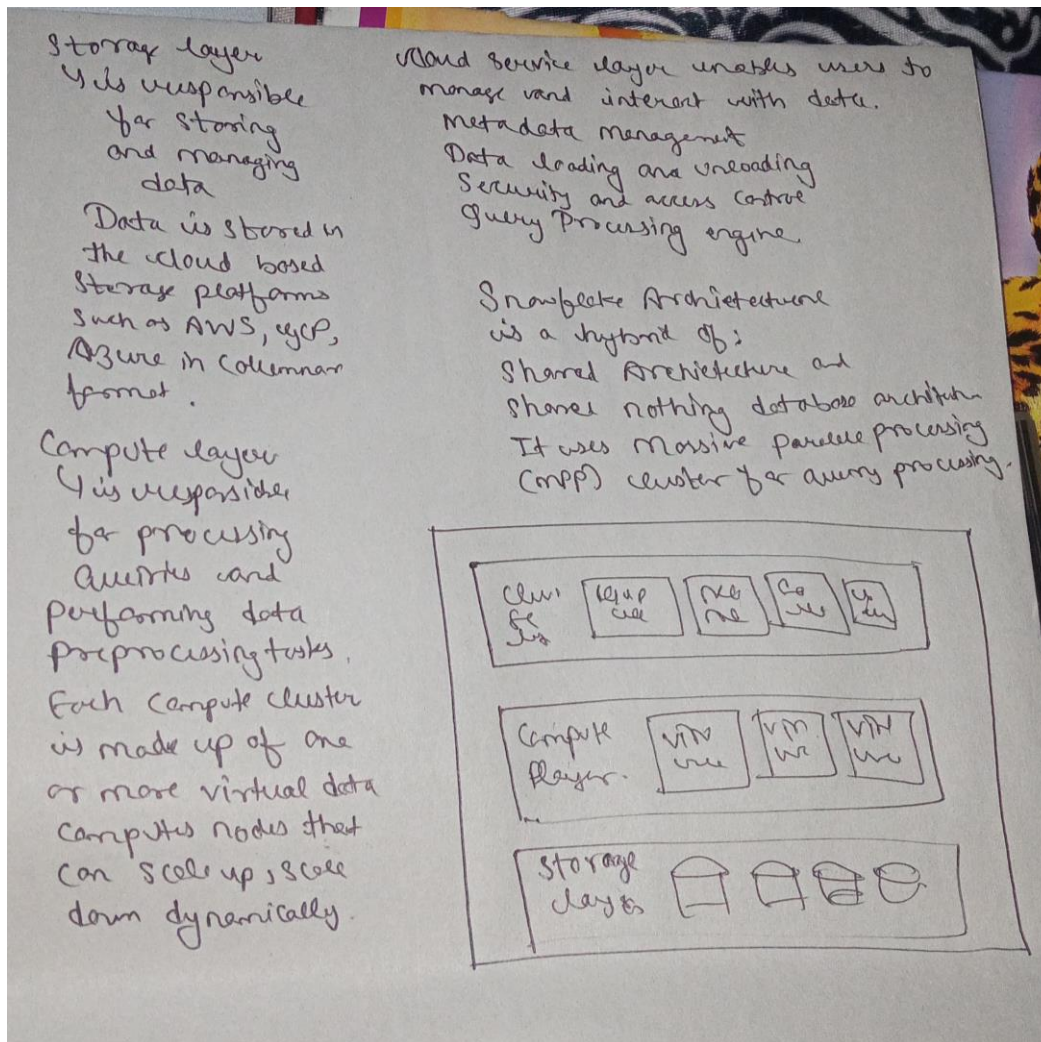 Storage layer
↳ is responsible
for storing
and managing
data
Data is stored in
the cloud based
Storage platforms
Such as AWS, GCP,
Azure in Columnar
format.
Compute layer
↳ is responsible
for processing
Queries and
performing data
preprocessing tasks.
Each Compute cluster
is made up of one
or more virtual data
computes nodes that
can scale up, scale
down dynamically.
Cloud Service layer enables users to
manage and interact with data.
Metadata management
Data loading and unloading
Security and access control
Query Processing engine.
Snowflake Architecture
is a hybrid of:
Shared Architecture and
Shared nothing database architecture
It uses Massive parallel processing
(MPP) cluster for query processing.
Compute
Player.
Storage
layer